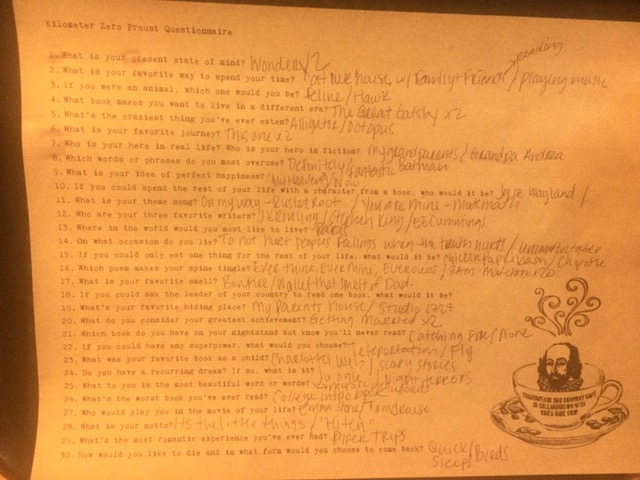 Kilometer Zero Proust Questionnaire
reading
1. What is your present state of mind? Wonder x/2
2. What is your favorite way to spend your time? house, w/ Family + Friends / playing music
3. If you were an animal, which one would you be? Feline / Hawk
4. What book makes you want to live in a different era? The Great Gatsby x2
5. What's the craziest thing you've ever eaten? Alligator / Octopus
6. What is your favorite journey? This one x2
7. Who is your hero in real life? Who is your hero in fiction? My grandparents / Grandpa Andrea
8. Which words or phrases do you most overuse? Definitely / Fantastic Batman
9. What is your idea of perfect happiness? / Now
10. If you could spend the rest of your life with a character from a book, who would it be? Wayland /
11. What is your theme song? On my way - Rusted Root / You are Mine - Mutemath
12. Who are your three favorite writers? JK Rowling / Stephen King / EE Cummings
13. Where in the world would you most like to live? Paris
14. On what occasion do you lie? To not hurt peoples feelings when the truth hurts / uncomfortable
15. If you could only eat one thing for the rest of your life, what would it be? / Chipotle
16. Which poem makes your spine tingle? Ever thine, Ever Mine, Ever ours / 3AM - Matchbox 20
17. What is your favorite smell? Bonfire / Wallet that smelt of Dad
18. If you could ask the leader of your country to read one book, what would it be?
19. What's your favorite hiding place? My Parents House / Studio 1227
20. What do you consider your greatest achievement? Getting Married x2
21. Which book do you have on your nightstand but know you'll never read? Catching Fire / None
22. If you could have any superpower, what would you choose? Teleportation / Fly
23. What was your favorite book as a child? Charlottes Web / scary stories
24. Do you have a recurring dream? If so, what is it? Night terrors
25. What to you is the most beautiful word or words?
26. What's the worst book you've ever read? College intro book
27. Who would play you in the movie of your life? Emma Stone / Tom Cruise
28. What is your motto? Its the little things /
29. What's the most romantic experience you've ever had? Paper Trips
30. How would you like to die and in what form would you choose to come back? Quick /
Sleep / Birds
SHAKESPEARE AND COMPANY CAFE
IN COLLABORATION WITH
BOB'S BAKE SHOP